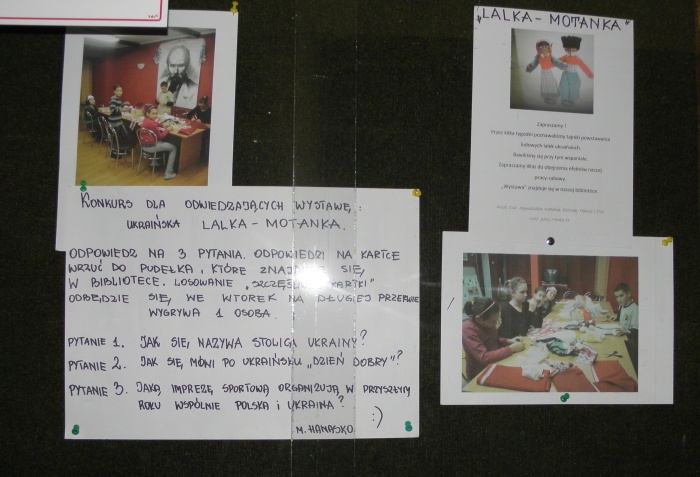 KONKURS DLA ODWIEDZAJĄCYCH WYSTAWĘ:
UKRAIŃSKA LALKA-MOTANKA.
ODPOWIEDZ NA 3 PYTANIA. ODPOWIEDZI NA KARTCE
WRZUĆ DO PUDEŁKA, KTÓRE SIĘ,
W BIBLIOTECE. LOSOWANIE
ODBĘDZIE SIĘ, WE WTOREK NA DŁUGIEJ PRZERWIE
WYGRYWA 1 OSOBA.
PYTANIE 1. JAK SIĘ, NAZYWA STOLICA UKRAINY?
PYTANIE 2. JAK SIĘ, MÓWI PO UKRAIŃSKU „DZIEŃ DOBRY"?
PYTANIE 3. JAKĄ IMPREZĘ SPORTOWĄ ORGANIZUJĄ W PRZYSZŁYM
ROKU WSPÓLNIE POLSKA i UKRAINA?
:)
M. HANAJKO
„LALKA-MOTANKA"
Zapraszamy !
Przez kilka tygodni poznawaliśmy tajniki powstawania
ludowych lalek ukraińskich.
Bawiliśmy się przy tym wspaniale.
Zapraszamy Was do obejrzenia efektów naszej
pracy-zabawy.
„Wystawa" znajduje się w naszej bibliotece.